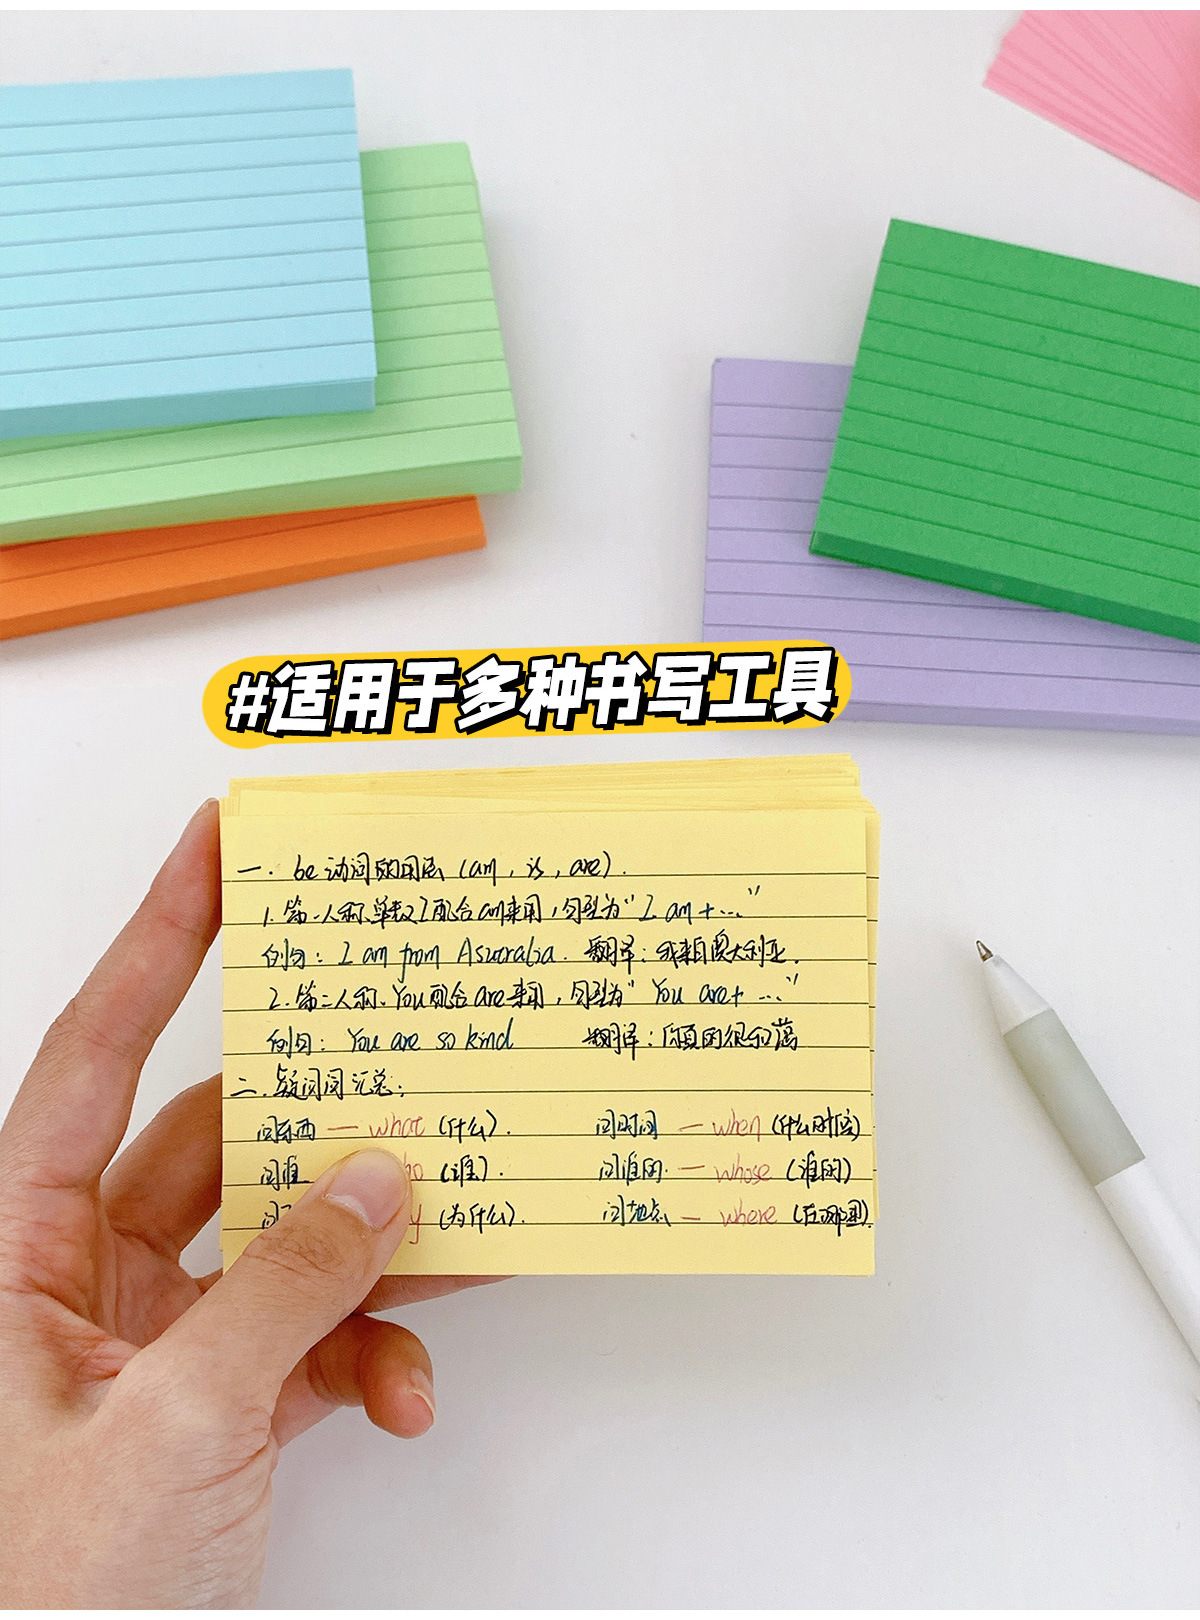 #适用于多种书写工具
一. be动词的用法 (am, is, are).
1. 第一人称单数I配合am来用, 句型为"I am + ..."
例句: I am from Asutralia. 翻译: 我来自澳大利亚.
2. 第二人称. You配合are来用, 句型为"You are+ ..."
例句: You are so kind 翻译: 你真的很和蔼
二. 疑问词汇总:
问东西 — what (什么). 问时间 — when (什么时间)
问谁 ho (谁). 问谁的. — whose (谁的)
问 y (为什么). 问地点 — where (在哪里).